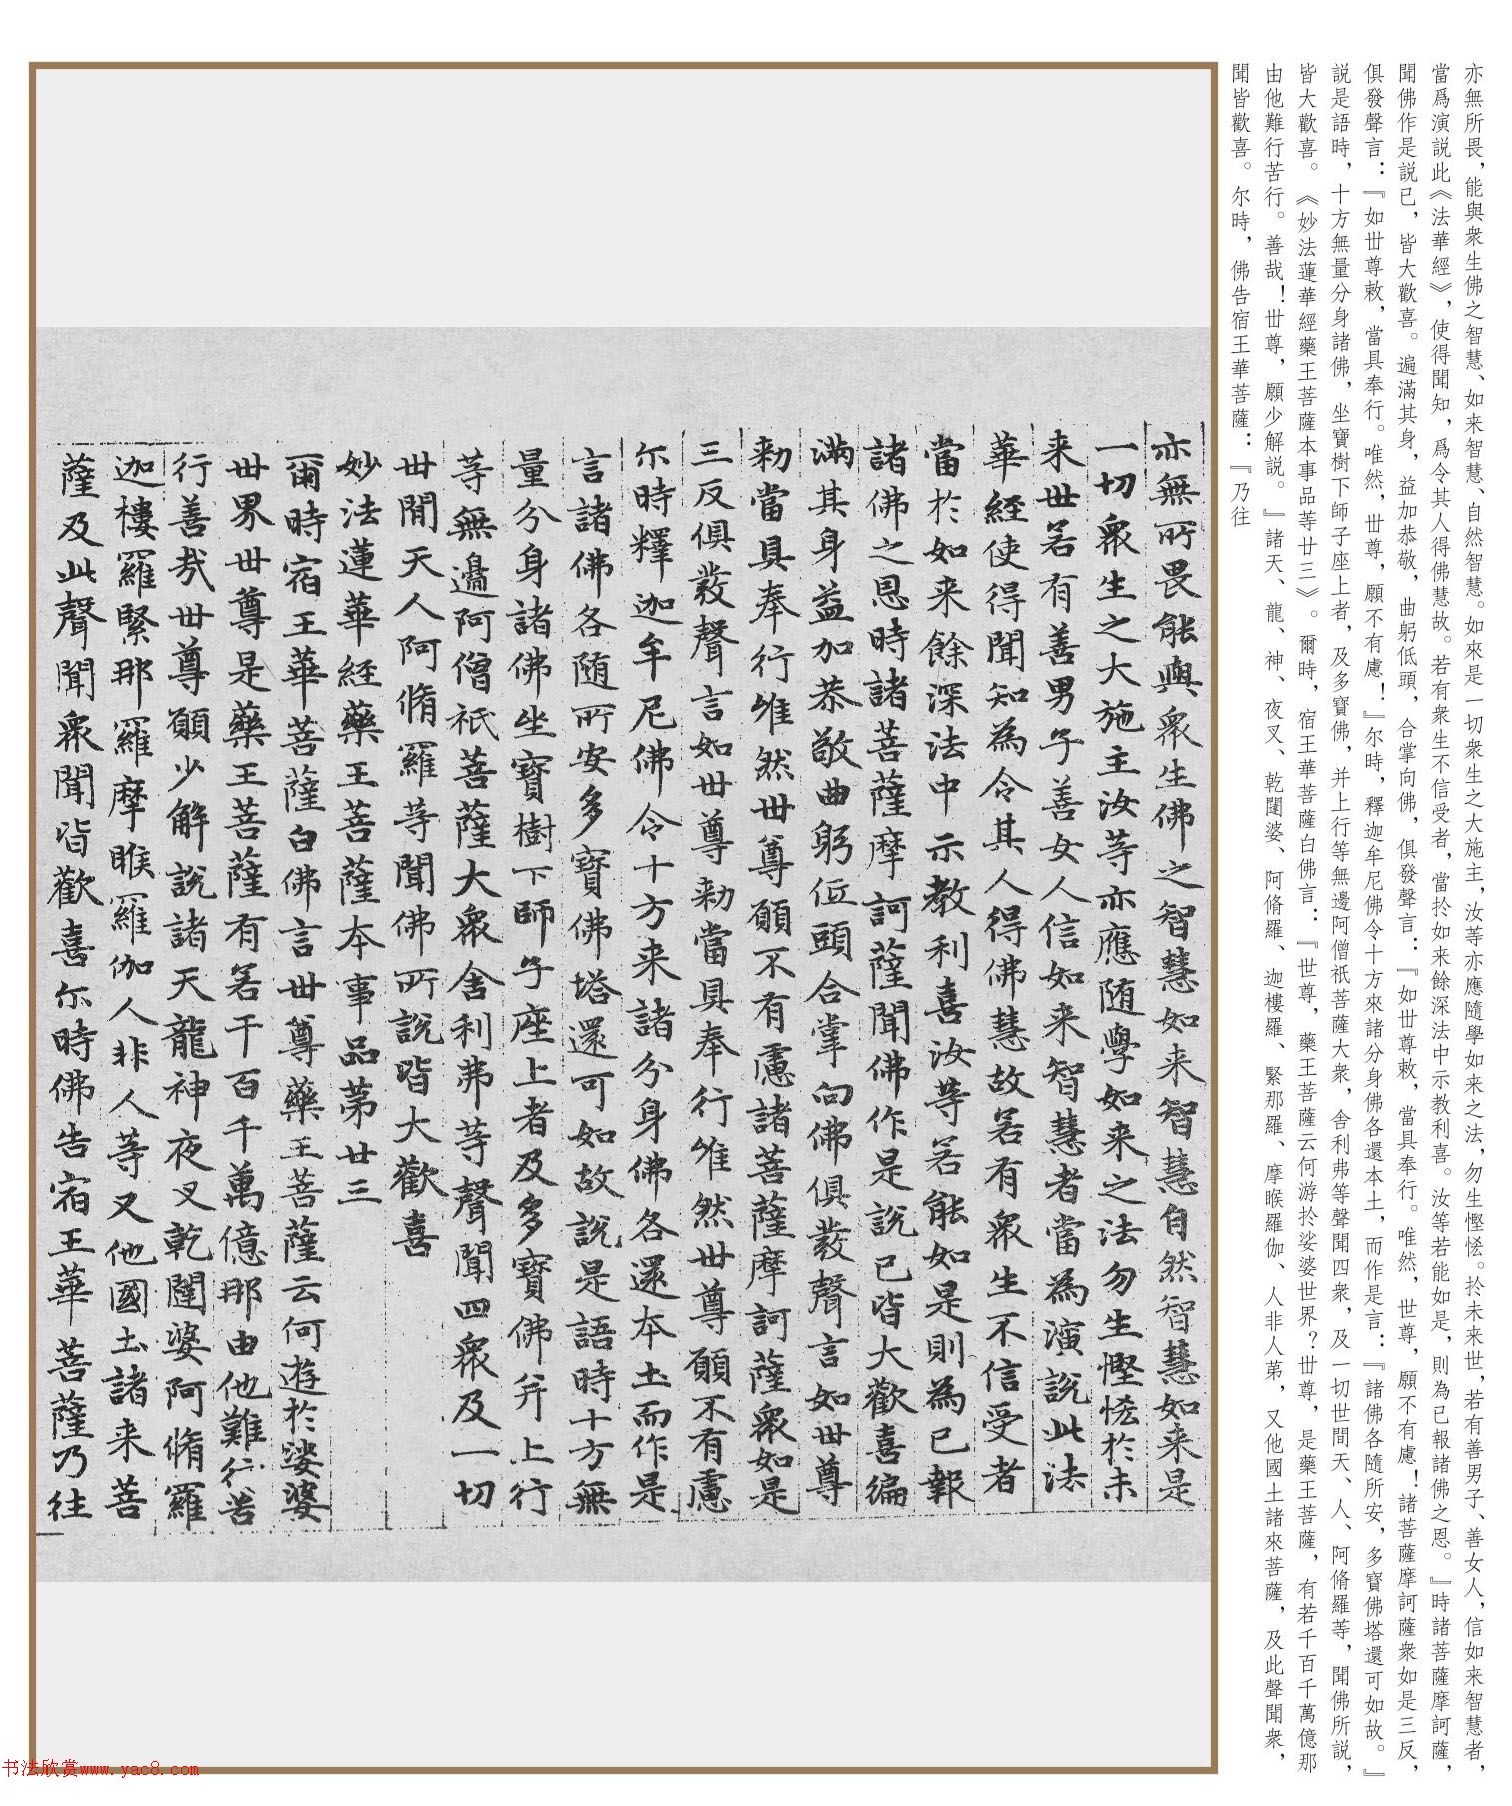 亦無所畏，能與衆生佛之智慧、如来智慧、自然智慧。如來是一切衆生之大施主，汝等亦應隨學如来之法，勿生慳悋。扵未来世，若有善男子、善女人，信如来智慧者，
當爲演説此《法華經》，使得聞知，爲令其人得佛慧故。若有衆生不信受者，當扵如来餘深法中示教利喜。汝等若能如是，則為已報諸佛之恩。』時諸菩薩摩訶薩，
聞佛作是説已，皆大歡喜。遍滿其身，益加恭敬，曲躬低頭，合掌向佛，俱發聲言：『如世尊敕，當具奉行。唯然，世尊，願不有慮！諸菩薩摩訶薩衆如是三反，
俱發聲言：『如丗尊敕，當具奉行。唯然，丗尊，願不有慮！』尔時，釋迦牟尼佛令十方來諸分身佛各還本土，而作是言：『諸佛各隨所安，多寶佛塔還可如故。』
説是語時，十方無量分身諸佛，坐寶樹下師子座上者，及多寶佛，并上行等無邊阿僧衹菩薩大衆，舍利弗等聲聞四衆，及一切世間天、人、阿脩羅等，聞佛所説，
皆大歡喜。《妙法蓮華經藥王菩薩本事品等廿三》。爾時，宿王華菩薩白佛言：『世尊，藥王菩薩云何游扵娑婆世界？丗尊，是藥王菩薩，有若千百千萬億那
由他難行苦行。善哉！丗尊，願少解説。』諸天、龍、神、夜叉、乾闥婆、阿脩羅、迦樓羅、緊那羅、摩睺羅伽、人非人苐，又他國土諸來菩薩，及此聲聞衆，
聞皆歡喜。尔時，佛告宿王華菩薩：『乃往
亦無所畏能與衆生佛之智慧如来智慧自然智慧如来是
一切衆生之大施主汝等亦應随學如来之法勿生慳悋扵未
来世若有善男子善女人信如来智慧者當為演說此法
華経使得聞知為令其人得佛慧故若有衆生不信受者
當扵如来餘深法中示教利喜汝等若能如是則為已報
諸佛之恩時諸菩薩摩訶薩聞佛作是說已皆大歡喜遍
滿其身益加恭敬曲躬伍頭合掌向佛俱發聲言如丗尊
勑當具奉行唯然丗尊願不有慮諸菩薩摩訶薩衆如是
三反俱發聲言如丗尊勑當具奉行唯然丗尊願不有慮
尒時釋迦牟尼佛令十方来諸分身佛各還本土而作是
言諸佛各随所安多寶佛塔還可如故說是語時十方無
量分身諸佛坐寶樹下師子座上者及多寶佛并上行
等無邊阿僧祇菩薩大衆舍利弗等聲聞四衆及一切
丗間天人阿脩羅等聞佛所說皆大歡喜
妙法蓮華経藥王菩薩本事品苐廿三
爾時宿王華菩薩白佛言丗尊藥王菩薩云何遊扵娑婆
丗界丗尊是藥王菩薩有若千百千萬億那由他難行苦
行善哉丗尊願少解說諸天龍神夜叉乾闥婆阿脩羅
迦樓羅緊那羅摩睺羅伽人非人等又他國土諸来菩
薩及此聲聞衆聞皆歡喜尒時佛告宿王華菩薩乃往
书法欣赏www.yac8.com